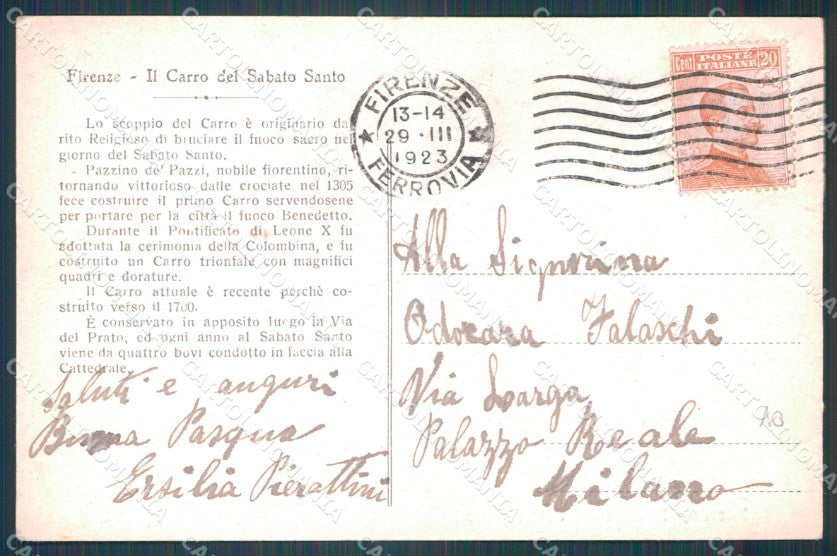 Firenze - Il Carro del Sabato Santo
Lo scoppio del Carro è originario dal
rito Religioso di bruciare il fuoco sacro nel
giorno del Sabato Santo.
- Pazzino de' Pazzi, nobile fiorentino, ri-
tornando vittorioso dalle crociate nel 1305
fece costruire il primo Carro servendosene
per portare per la città il fuoco Benedetto.
Durante il Pontificato di Leone X fu
adottata la cerimonia della Colombina, e fu
costruito un Carro trionfale con magnifici
quadri e dorature.
Il Carro attuale è recente perchè co-
struito verso il 1700.
È conservato in apposito luogo in Via
del Prato, ed ogni anno al Sabato Santo
viene da quattro bovi condotto in faccia alla
Cattedrale.
Saluti e auguri
Buona Pasqua
Ersilia Pierattini
FIRENZE
13-14
29 · III
1923
FERROVIA
Cent POSTE ITALIANE 20
Alla Signorina
Odocara Falaschi
Via Larga
Palazzo Reale
Milano
CARTOLINOMANIA